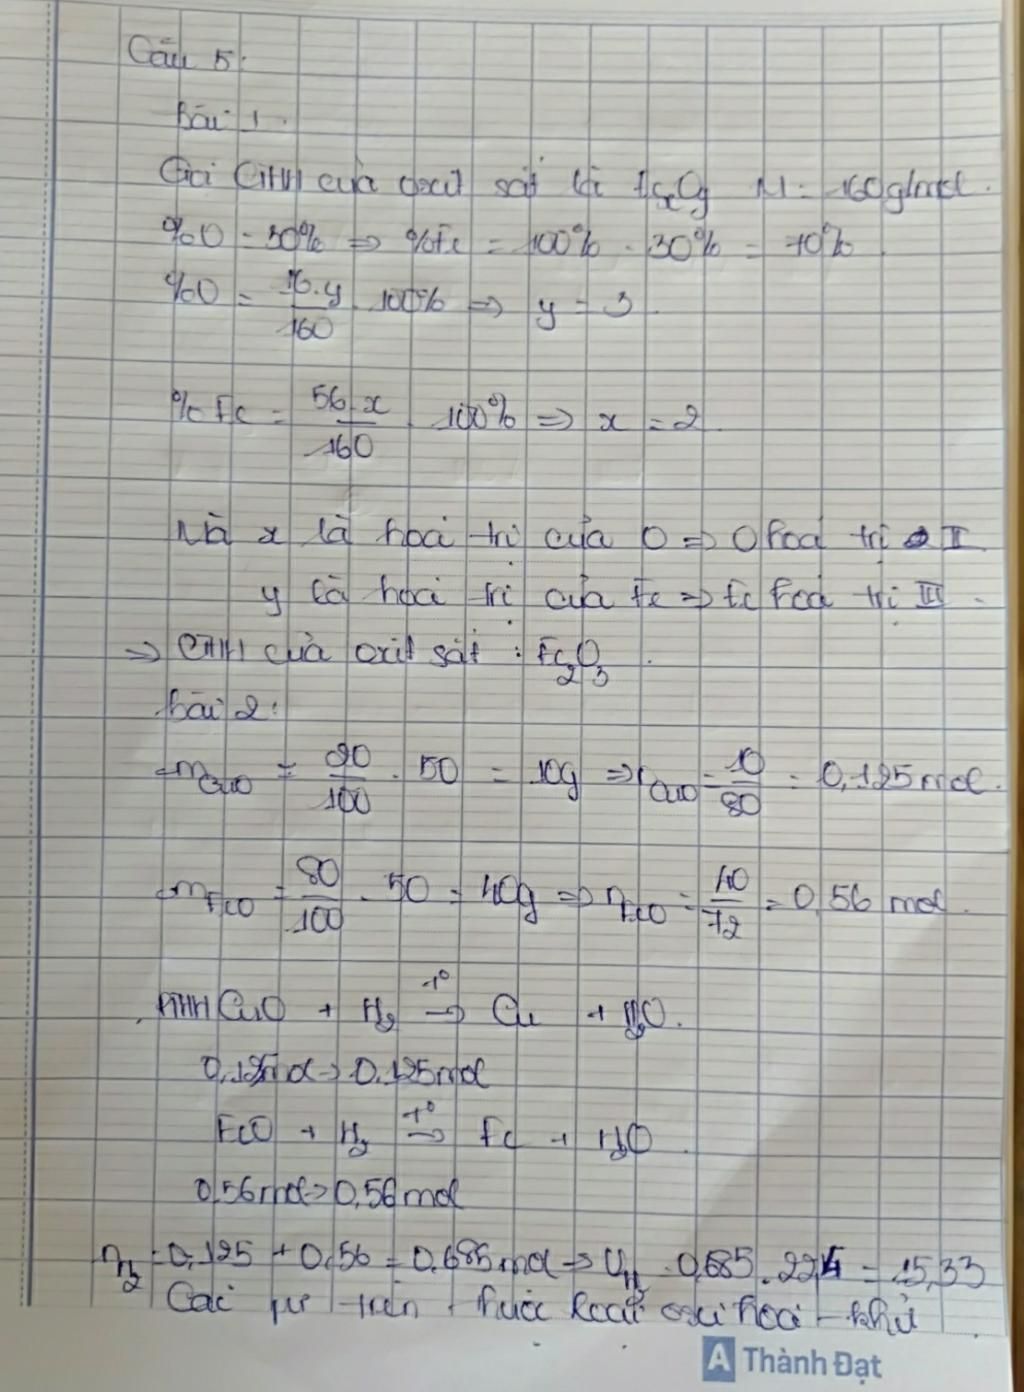 Câu 5:
Bài 1.
Gọi CTHH của oxit sắt là FexOy M = 160g/mol.
%O = 30% => %Fe = 100% - 30% = 70%
%O = 16.y/160 . 100% => y = 3.
%Fe = 56.x/160 . 100% => x = 2.
Mà x là hoá trị của O => O hoá trị II
y là hoá trị của Fe => Fe hoá trị III.
=> CTHH của oxit sắt : Fe2O3.
Bài 2:
+mCuO = 20/100 . 50 = 10g => nCuO = 10/80 = 0,125 mol.
+mFeO = 80/100 . 50 = 40g => nFeO = 40/72 = 0,56 mol.
PTHH CuO + H2 t° → Cu + H2O.
0,125mol → 0,125mol
FeO + H2 t° → Fe + H2O.
0,56mol → 0,56mol
nH2 = 0,125 + 0,56 = 0,685mol → VH = 0,685.22,4 = 15,33
Các pư trên thuộc loại oxi hoá - khử
A Thành Đạt